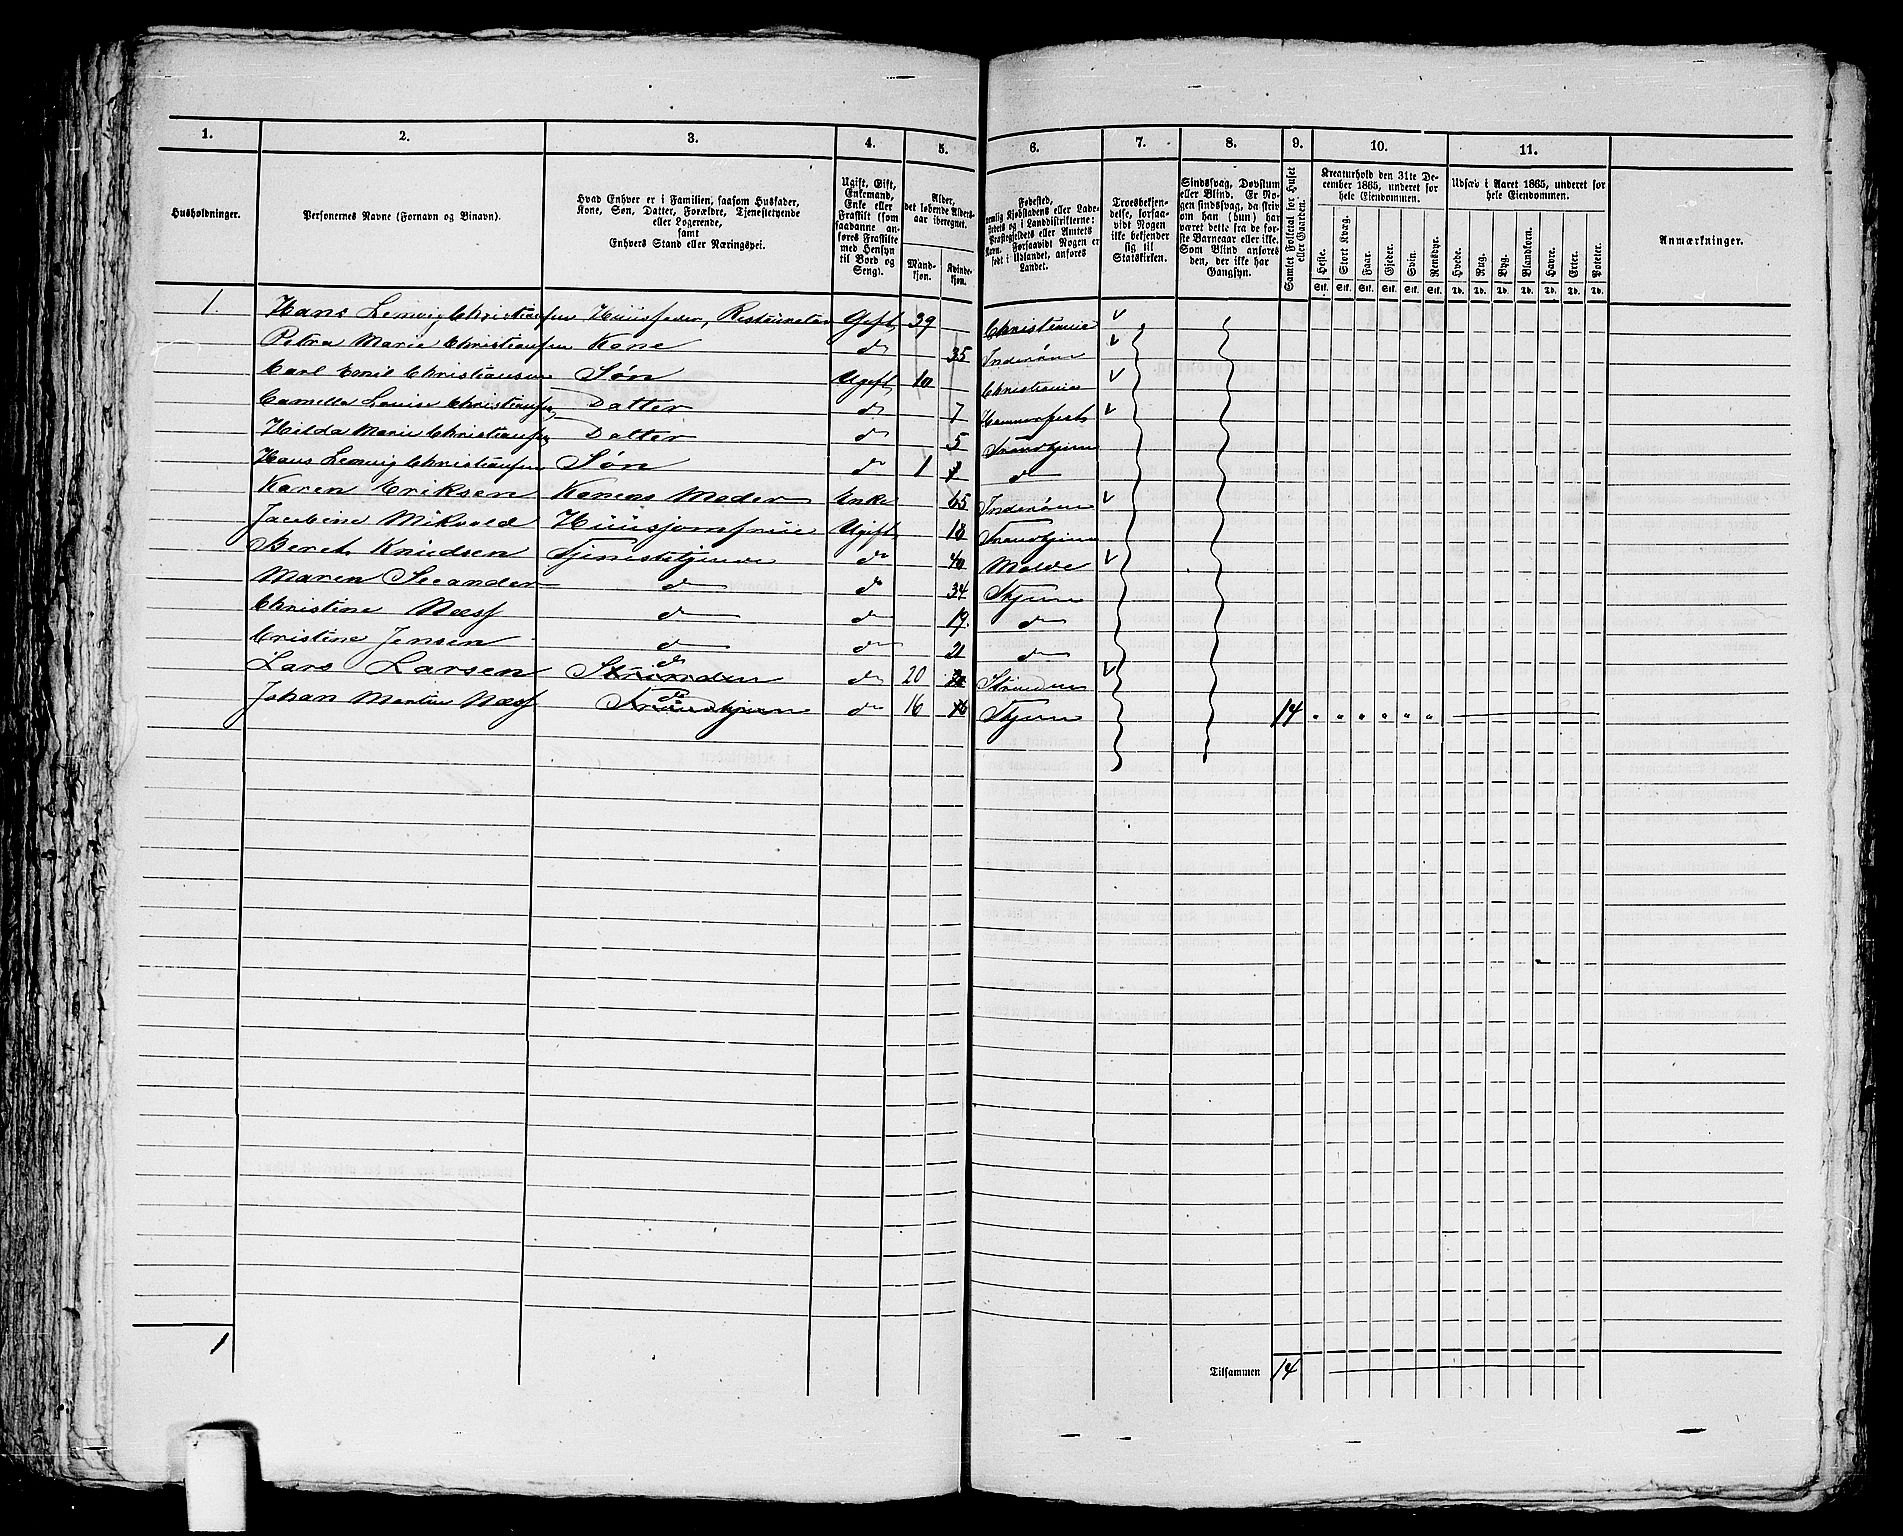 1. 2. 3. 4. 5. 6. 7. 8. 9. 10. 11.
Husholdninger.
Personernes Navne (Fornavn og Binavn).
Hvad Enhver er i Familien, saasom Husfader,
Kone, Søn, Datter, Forældre, Tjenestetyende
eller Logerende,
samt
Enhvers Stand eller Næringsvei.
Ugift, Gift,
Enkemand,
Enke eller
Fraskilt (som
saadanne an-
føres Fraskilte
med Hensyn
til Bord og
Seng).
Alder,
det løbende Alders-
aar iberegnet.
Mand-
kjøn.
Kvinde-
kjøn.
Fødested,
nemlig Kjøbstadens eller Lade-
stedets og i Landdistrikterne:
Præstegjeldets eller Amtets
Navn. Forsaavidt Nogen er
født i Udlandet, anføres
Landet.
Troesbekjen-
delse, forsaa-
vidt Nogen
ikke bekjender
sig til
Statskirken.
Sindssvag, Døvstum
eller Blind. Er No-
gen sindssvag, da skriv
om han (hun) har
været dette fra de før-
ste Barneaar eller ikke.
Som Blind anføres
den, der ikke har
Gangsyn.
Samlet Folketal for Huset
eller Gaarden.
Kreaturhold den 31te De-
cember 1865, underet for
hele Eiendommen.
Heste. Stort Kvæg. Faar. Gjeder. Svin. Rensdyr.
Stk. Stk. Stk. Stk. Stk. Stk.
Udsæd i Aaret 1865, underet for
hele Eiendommen.
Hvede. Rug. Byg. Blandkorn. Havre. Erter. Poteter.
Td. Td. Td. Td. Td. Td. Td.
Anmærkninger.
1. Hans Lemvig Christiansen Huusfader, Restauratør Gift 39 Christiania
Petra Marie Christiansen Kone do 35 Inderøen
Carl Emil Christiansen Søn Ugift 10 Christiania
Camilla Louise Christiansen Datter do 7 Hammerfest
Hilda Marie Christiansen Datter do 5 Trondhjem
Hans Lemvig Christiansen Søn do 1 1 do
Karen Eriksen Konens Moder Enke 65 Inderøen
Jacobine Mikvold Huusjomfrue Ugift 18 Trondhjem
Beret Knudsen Tjenestetjende do 40 Molde
Maren Seeander do do 34 Thjem
Christine Næss do do 19. do
Cristine Jensen do do 21 do
Lars Larsen do Strinden do 20 20 Strinden
Johan Martin Næss do Trondhjem do 16 16 Thjem 14
1
Tilsammen 14